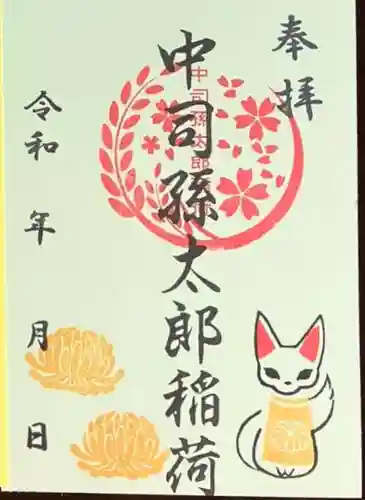 奉拝
中司孫太郎稲荷
中司孫太郎
令和 年 月 日